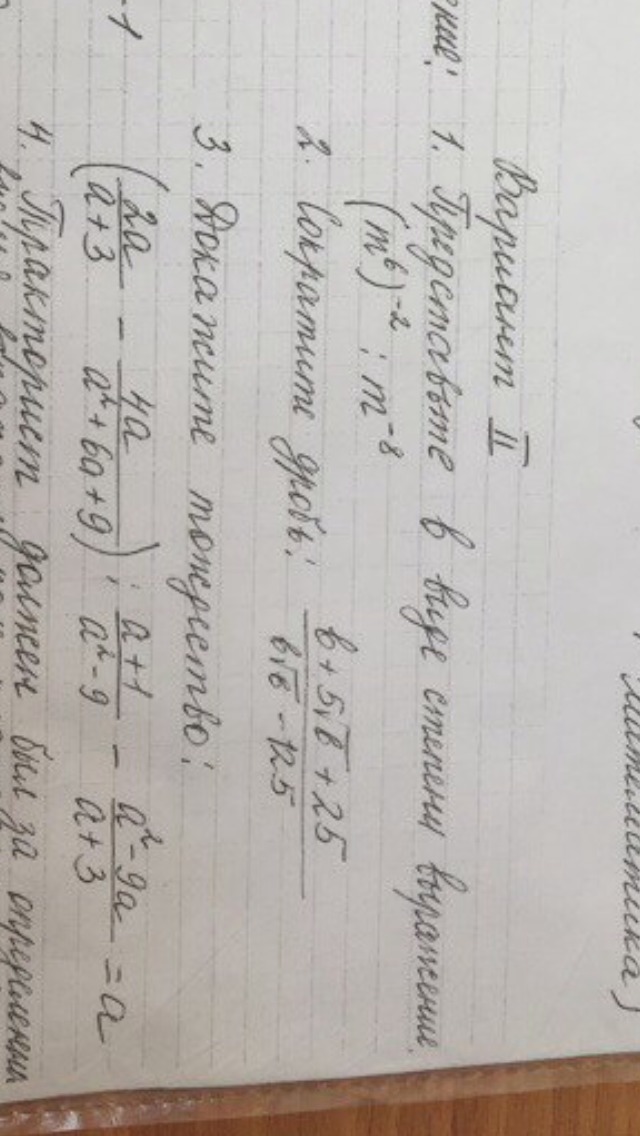 Математика)
Вариант II
1. Представьте в виде степени выражение
(m⁶)⁻² : m⁻⁸
2. Сократите дробь: (b + 5√b + 25)/(b√b - 125)
3. Докажите тождество:
(2a/(a + 3) - 4a/(a² + 6a + 9)) : (a + 1)/(a² - 9) - (a² - 9a)/(a + 3) = a
4. Тракторист должен был за определении